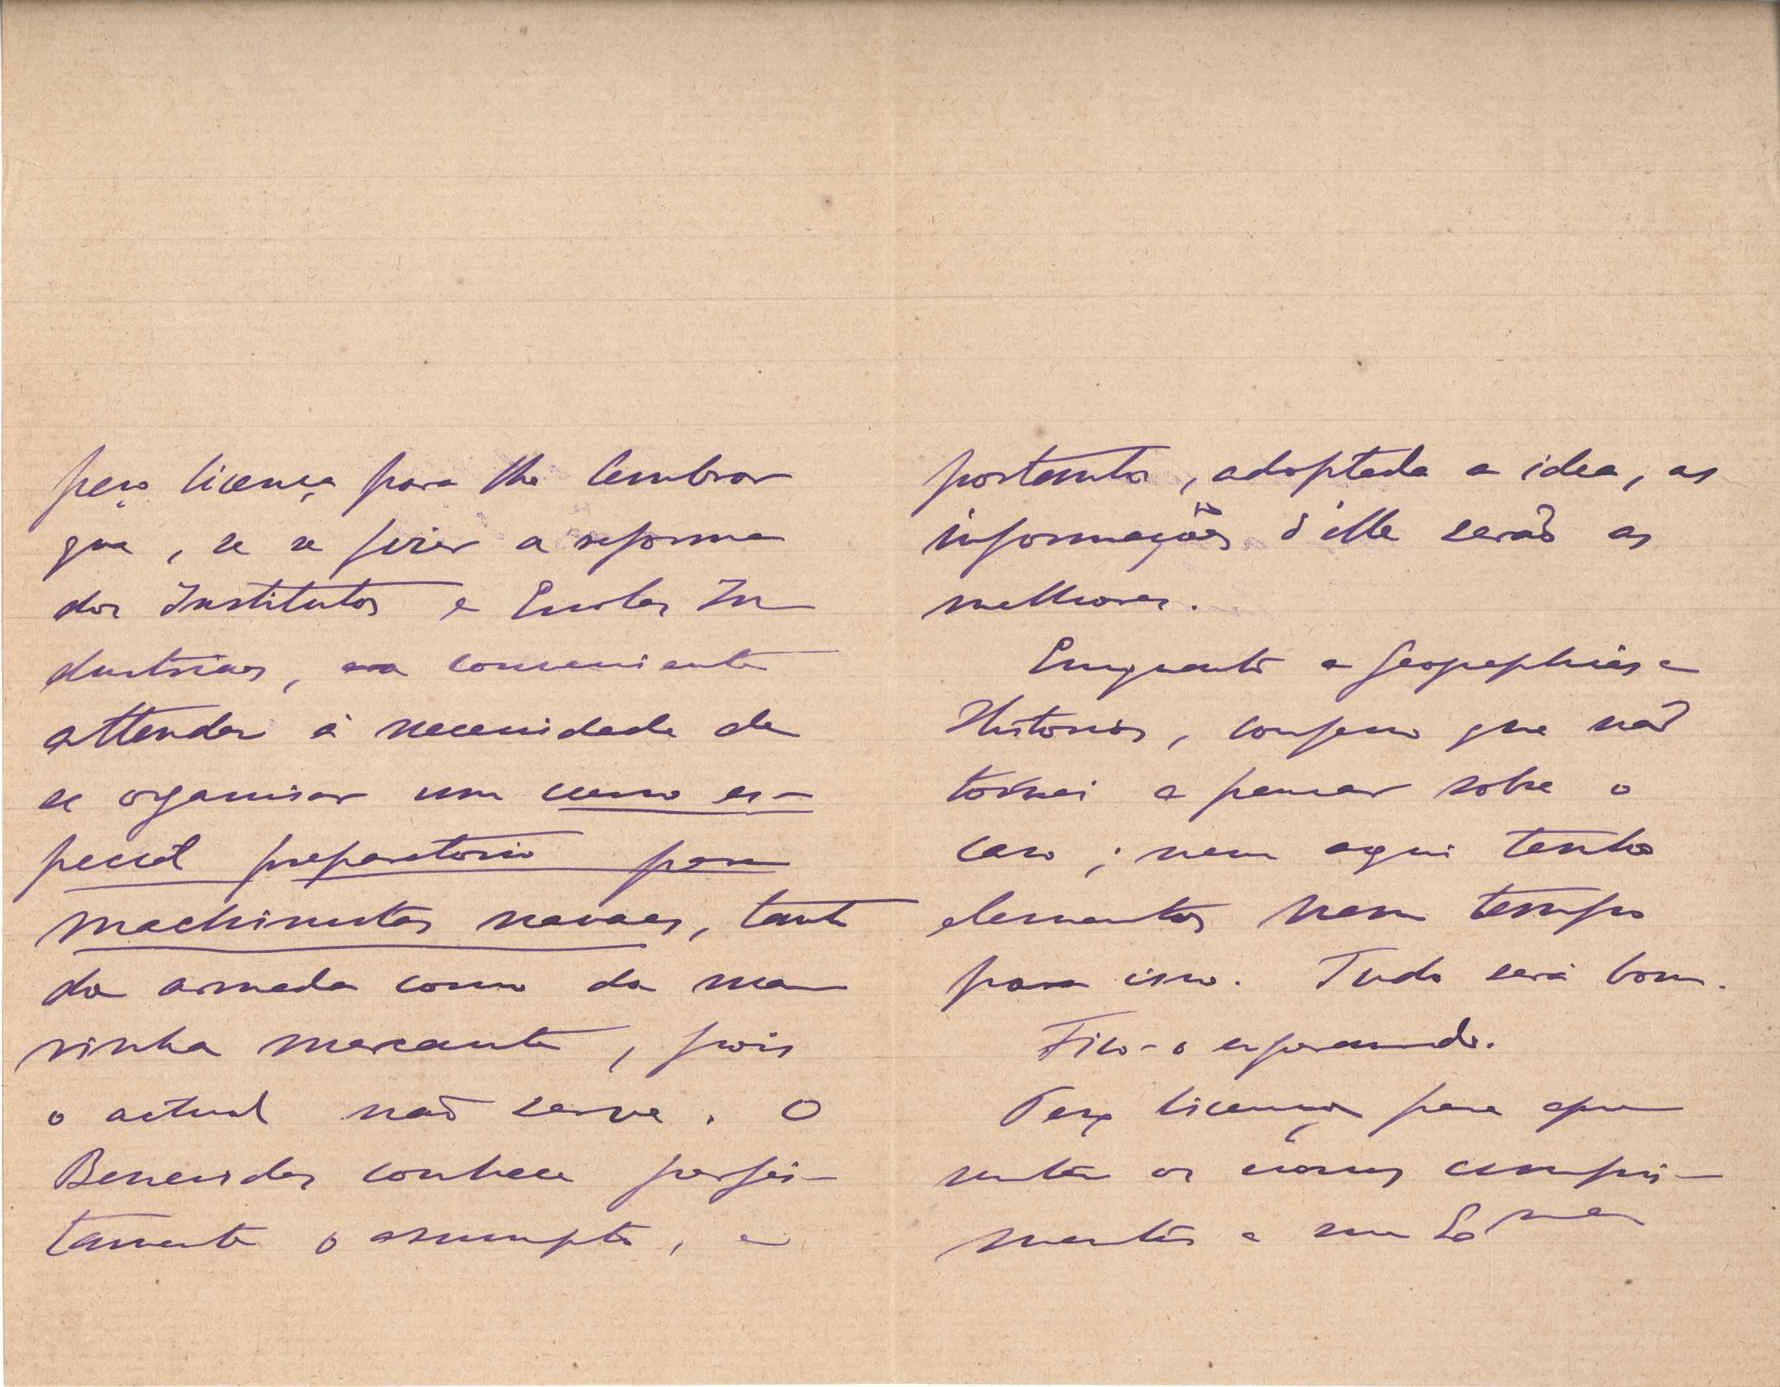 peço licença para lhe lembrar
que, se se fizer a reforma
dos Institutos e Escolas In
dustriaes, era conveniente
attender á necessidade de
se organisar um curso es-
pecial preparatorio para
machinistas navaes, tanto
da armada como da ma
rinha mercante, pois
o actual não serve. O
Benevides conhece perfei-
tamente o assumpto, e
portanto, adoptada a idea, as
informações d'elle serão as
melhores.
Emquanto a Geographias e
Historias, confesso que não
tornei a pensar sobre o
caso; nem aqui tenho
elementos nem tempo
para isso. Tudo será bom.
Fico-o esperando.
Peço licença para apre
sentar os nossos cumpri-
mentos a sua